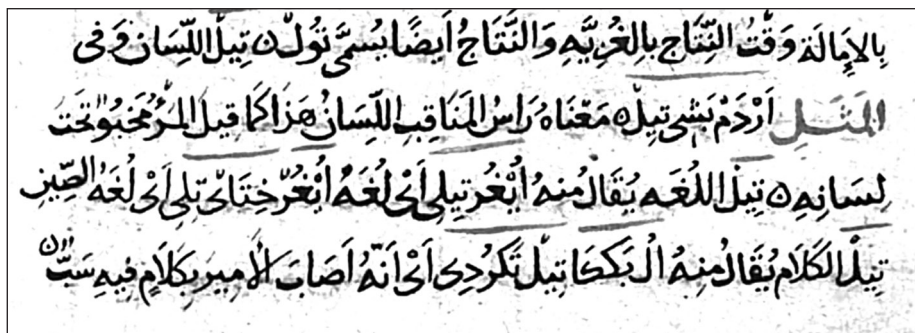 بِالإِمَالَة وَقْتُ النِّتَاج بِالغُرِيَّهِ وَالنَّتَاجُ اَيضًا يُسَمَّى تُولْ ن تِيلْ اللّسَان وَفى
المَثَلِ اَرْدَمْ بَشِى تِيلْ ه مَعْنَاه رَاسُ المَنَاقِبِ اللِّسَانُ هَذَا كَمَا قِيلَ المَرْءُ مَخْبُوٌ تَحْتَ
لِسَانِهِ ن تِيلْ اللُغَه يُقَالُ مِنهُ اُيْغُر تِيلِى اَىْ لُغَهُ اُيْغُرْ خِتَاىْ تِلِى اَىْ لُغَهُ الصِّينِ
تِيلْ الكَلَام يُقَالُ مِنهُ اُلْ بَكْكَا تِيلْ تَكُرْدِى اَىْ اَنَّهُ اَصَابَ الاَمِيرَ بِكَلَامٍ فِيهِ سَبٌّ ن